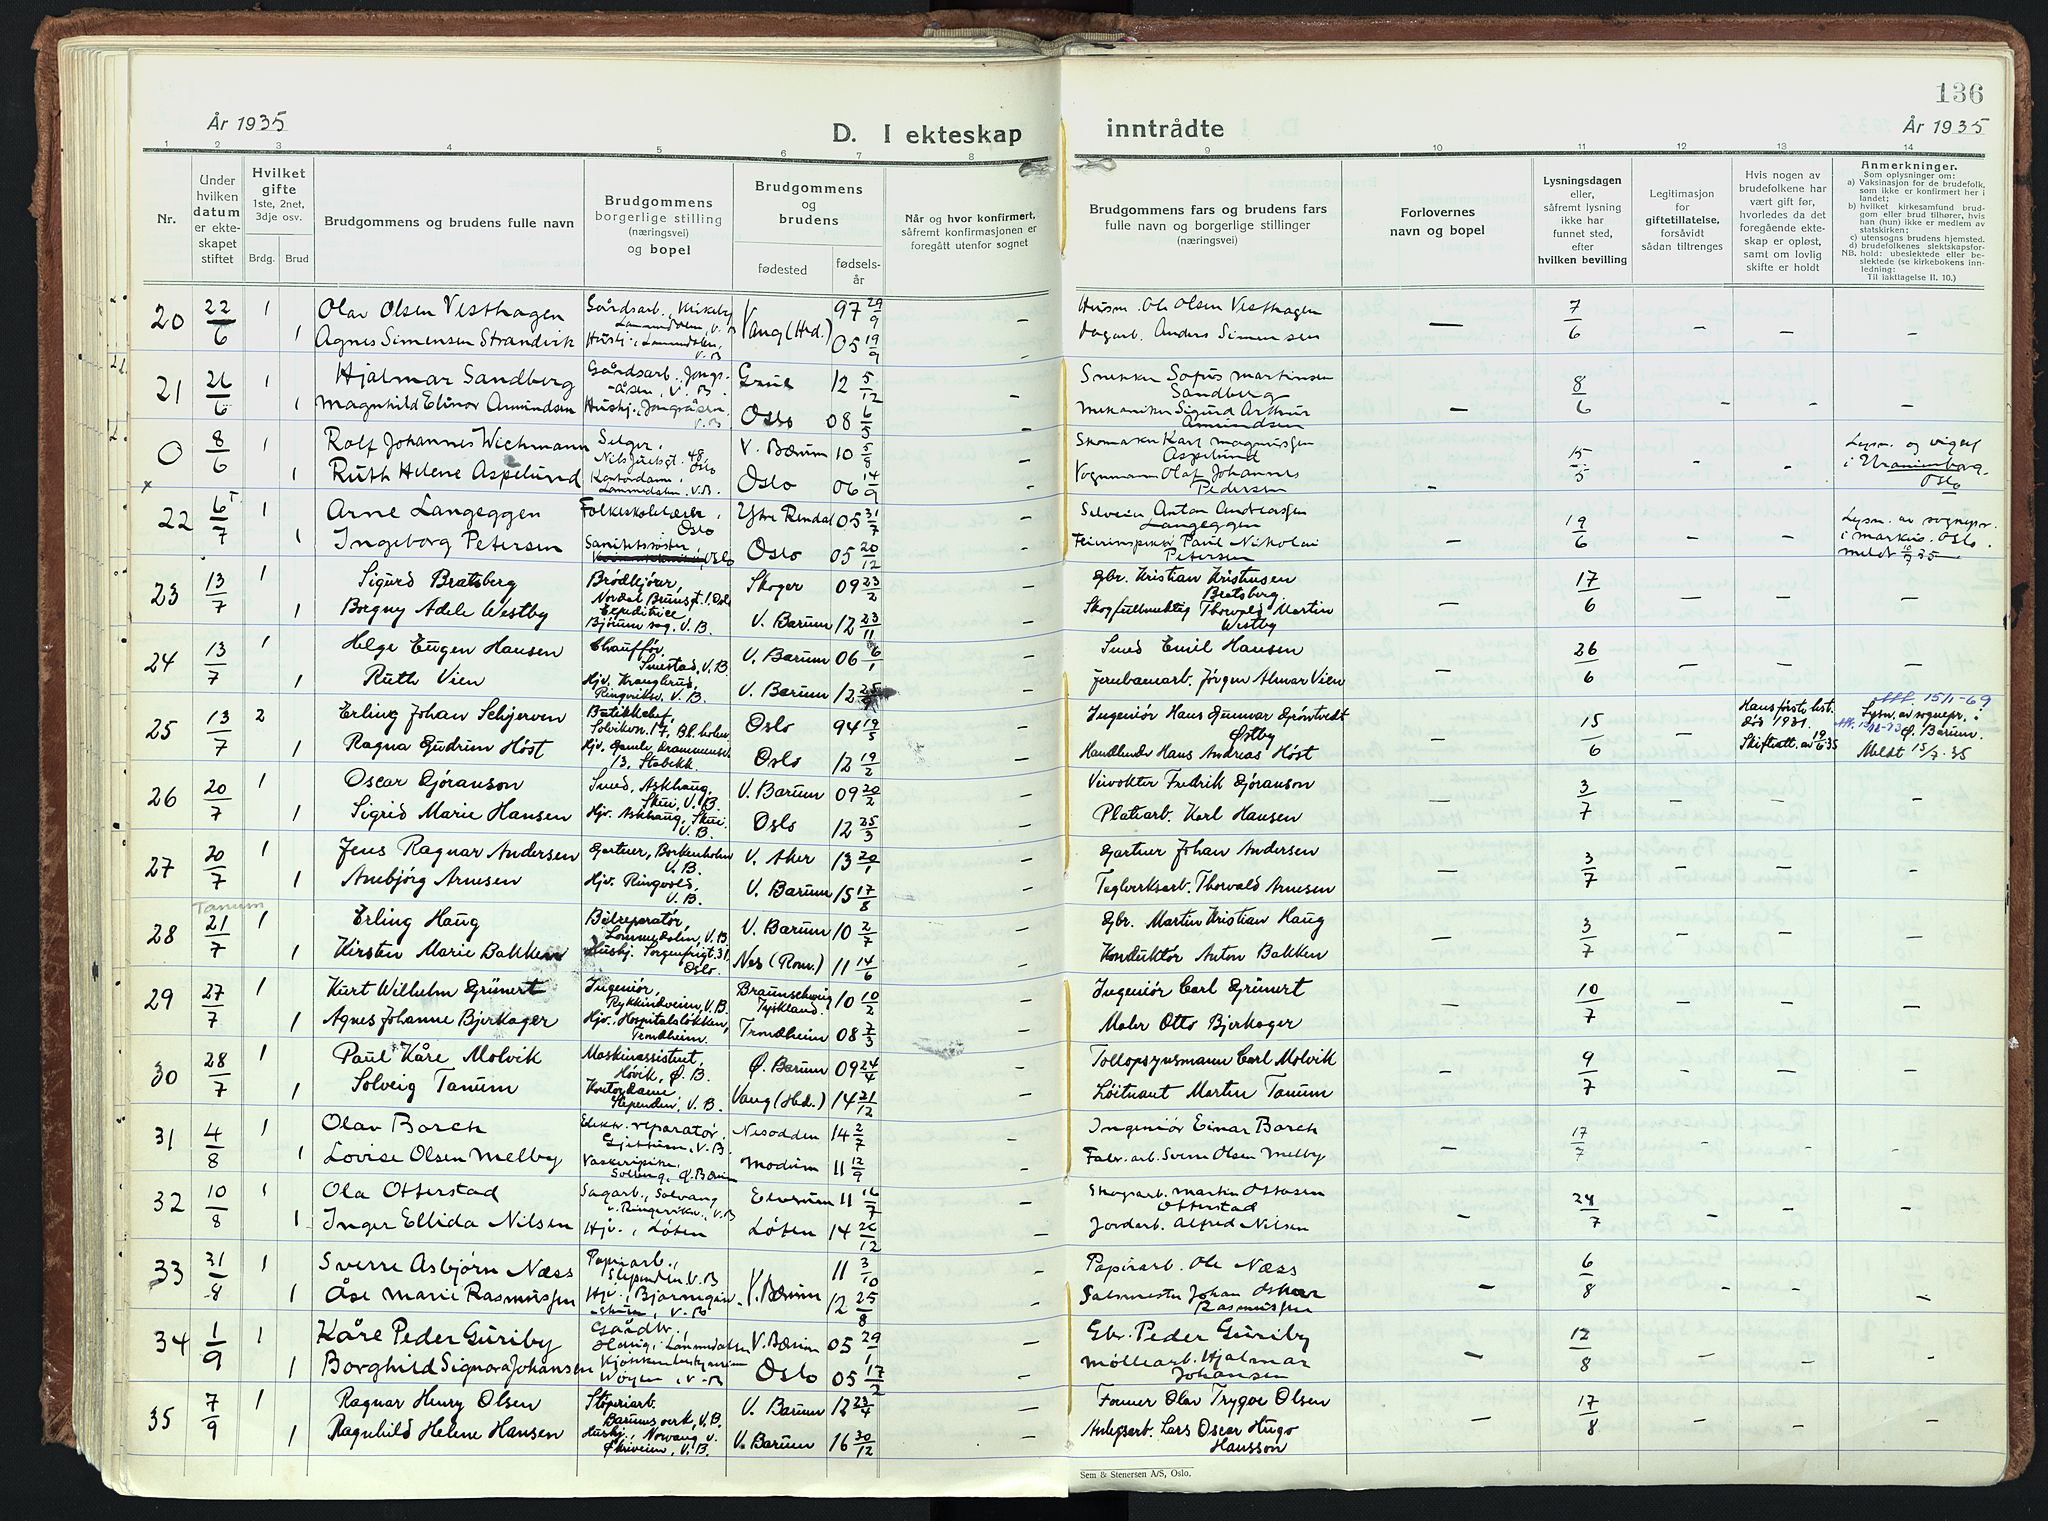 136
År 1935
D. I ekteskap inntrådte
År 1935
1 2 3 4 5 6 7 8 9 10 11 12 13 14
Nr.
Under hvilken datum er ekteskapet stiftet
Hvilket gifte 1ste, 2net, 3dje osv.
Brdg. Brud
Brudgommens og brudens fulle navn
Brudgommens borgerlige stilling (næringsvei) og bopel
Brudgommens og brudens
fødested
fødselsår
Når og hvor konfirmert, såfremt konfirmasjonen er foregått utenfor sognet
Brudgommens fars og brudens fars fulle navn og borgerlige stillinger (næringsvei)
Forlovernes navn og bopel
Lysningsdagen eller, såfremt lysning ikke har funnet sted, efter hvilken bevilling
Legitimasjon for giftetillatelse, forsåvidt sådan tiltrenges
Hvis nogen av brudefolkene har vært gift før, hvorledes da det foregående ekteskap er opløst, samt om lovlig skifte er holdt
Anmerkninger.
Som oplysninger om:
a) Vaksinasjon for de brudefolk, som ikke er konfirmert her i landet;
b) hvilket kirkesamfund brudgom eller brud tilhører, hvis han (hun) ikke er medlem av statskirken;
c) utensogns brudens hjemsted.
d) brudefolkenes slektskapsforhold: ubeslektede eller beslektede (se kirkebokens innledning:
NB. Til iakttagelse II. 10.)
20 22/6 1 Olav Olsen Vesthagen Gårdsarb., Kirkeby Lommedalen, V. B Vang (Hed.) 97 29/9 – Husm. Ole Olsen Vesthagen — 7/6 – – –
1 Agnes Simensen Strandvik Hushj., Lommedalen, V. B 05 19/9 – Dagarb. Anders Simensen
21 26/6 1 Hjalmar Sandberg Gårdsarb., Jongsåsen, V. B. Grue 12 5/12 – Snekker Sofus Martinsen Sandberg – 8/6 – – –
1 Magnhild Elinor Amundsen Hushj., Jongsåsen, V. B Oslo 08 6/5 – Mekaniker Sigurd Arthur Amundsen
0 8/6 1 Rolf Johannes Wichmann Selger, Nils Juelsgt. 48 Oslo V. Bærum 10 5/8 – Skomaker Karl Magnussen Aspelund – 15/5 – – Lysn. og vigsel i Uranienborg, Oslo
1 Ruth Helene Aspelund Kontordame, Lommedalen, V. B. Oslo 06 14/9 – Vognmann Olaf Johannes Pedersen
22 6/7 1 Arne Langeggen Folkeskolelærer, Oslo Ytre Rendal 05 31/7 – Selveier Anton Andreassen Langeggen 19/6 Lysn. av sognepr. i Markus, Oslo.
1 Ingeborg Petersen Sanitetssøster, Oslo Oslo 05 20/12 – Feierinspektør Paul Nikolai Petersen
23 13/7 1 Sigurd Bratsberg Brødkjører, Nordal Brunsgt. 1, Oslo Skoger 09 23/2 – Gbr. Kristian Kristensen Bratsberg. – 17/6 – – –
1 Borgny Adele Westby Expeditrice Bjørum sag, V. B. V. Bærum 12 23/11 – Skogfullmektig Thorvald Martin Westby
24 13/7 1 Helge Eugen Hansen Chauffør, Smestad, V. B V. Bærum 06 6/1 – Smed Emil Hansen – 26/6 – – –
1 Ruth Vien Hjv. Kranglerud, Ringeriksv. V. B. V. Bærum 12 – Jernbanearb. Jørgen Almar Vien
25 13/7 2 Erling Johan Schjerven Butikkchef, Solvikvn. 17, Bl.holm Oslo 94 19/5 – Ingeniør Hans Gunnar Grøntvedt Østby – 15/6 – Hans første best. Død 1931. Skifteatt. av 19/6 35 Att. 15/1-69 Lysn. av sognepr. i Ø. Bærum.
1 Ragna Gudrun Høst Hjv. Gamle Drammensv. 13, Stabekk Oslo 12 19/2 – Handlende Hans Andreas Høst Meldt 15/7 35
26 20/7 1 Oscar Gjøranson Smed, Askhaug, Skui, V. B. V. Bærum 09 20/2 – Veivokter Fredrik Gjøranson – 3/7 – – –
1 Sigrid Marie Hansen Hjv. Askhaug, Skui. V. B. Oslo 12 25/3 – Platearb. Karl Hansen
27 20/7 1 Jens Ragnar Andersen Gartner, Borkenholm V. B. V. Aker 13 20/1 – Gartner Johan Andersen – 3/7 – – –
1 Ambjørg Arnesen Hjv. Ringvold, V. B. V. Bærum 15 17/8 – Teglverksarb. Thorvald Arnesen
Tanum
28 21/7 1 Erling Haug Bilreparatør, Lommedalen, V. B. V. Bærum 10 2/7 – Gbr. Martin Kristian Haug – 3/7 – – –
1 Kirsten Marie Bakken Hushj. Sorgenfrigt. 31, Oslo. Nes (Rom.) 11 14/6 – Konduktør Anton Bakken
29 27/7 1 Kurt Wilhelm Grünert Ingeniør, Rykkindveien, V. B. Braunschweig Tyskland. 10 10/2 – Ingeniør Carl Grünert – 10/7 – – –
1 Agnes Johanne Bjerkager Hjv., Hospitalsløkken, Trondheim. Trondheim 08 7/3 – Maler Otto Bjerkager
30 28/7 1 Paul Kåre Molvik Maskinassistent, Høvik, Ø. B. Ø. Bærum 09 24/4 – Tollopsynsmann Carl Molvik – 9/7 – – –
1 Solveig Tanum Kontordame Slependen, V. B. Vang (Hed.) 14 21/12 – Løitnant Martin Tanum
31 4/8 1 Olav Borch Elektr. reparatør, Gjettum, V. B. Nesodden 14 2/7 – Ingeniør Einar Borch – 17/7 – – –
1 Lovise Olsen Melby Vaskeripike, Solveng, Ø. Bærum Modum 11 12/9 – Fabr.arb. Sverre Olsen Melby
32 10/8 1 Ola Otterstad Sagarb., Solvang v. Ringeriksv., V. B Elverum 11 – Skogsarb. Martin Ottosen Otterstad – 24/7 – – –
1 Inger Ellida Nilsen Hjv., Løten Løten 14 26/12 – Jordarb. Alfred Nilsen
33 31/8 1 Sverre Asbjørn Næss Papirarb., Slependen V. B V. Bærum 11 3/10 – Papirarb. Ole Næss – 6/8 – – –
1 Åse Marie Rasmussen 12 25/8 – Salsmester Johan Oskar Rasmussen
34 1/9 1 Kåre Peder Gúriby Gårdbr., Lommedalen V. Bærum 05 29/1 – Gbr. Peder Gúriby – 12/8 – – –
1 Borghild Signora Johansen Wøyen, V. B Oslo 05 17/2 – Møllearb. Hjalmar Johansen
35 7/9 1 Ragnar Henry Olsen Støperiarb. Bærums verk, V. B. V. Bærum 12 23/4 – Former Olav Trygve Olsen – 17/8 – – –
1 Ragnhild Helene Hansen Hushj., Norvang v. Øskiveien, V. B. V. Bærum 16 30/12 – Anlegsarb. Lars Oscar Hugo Hansson
Sem & Stenersen A/S, Oslo.